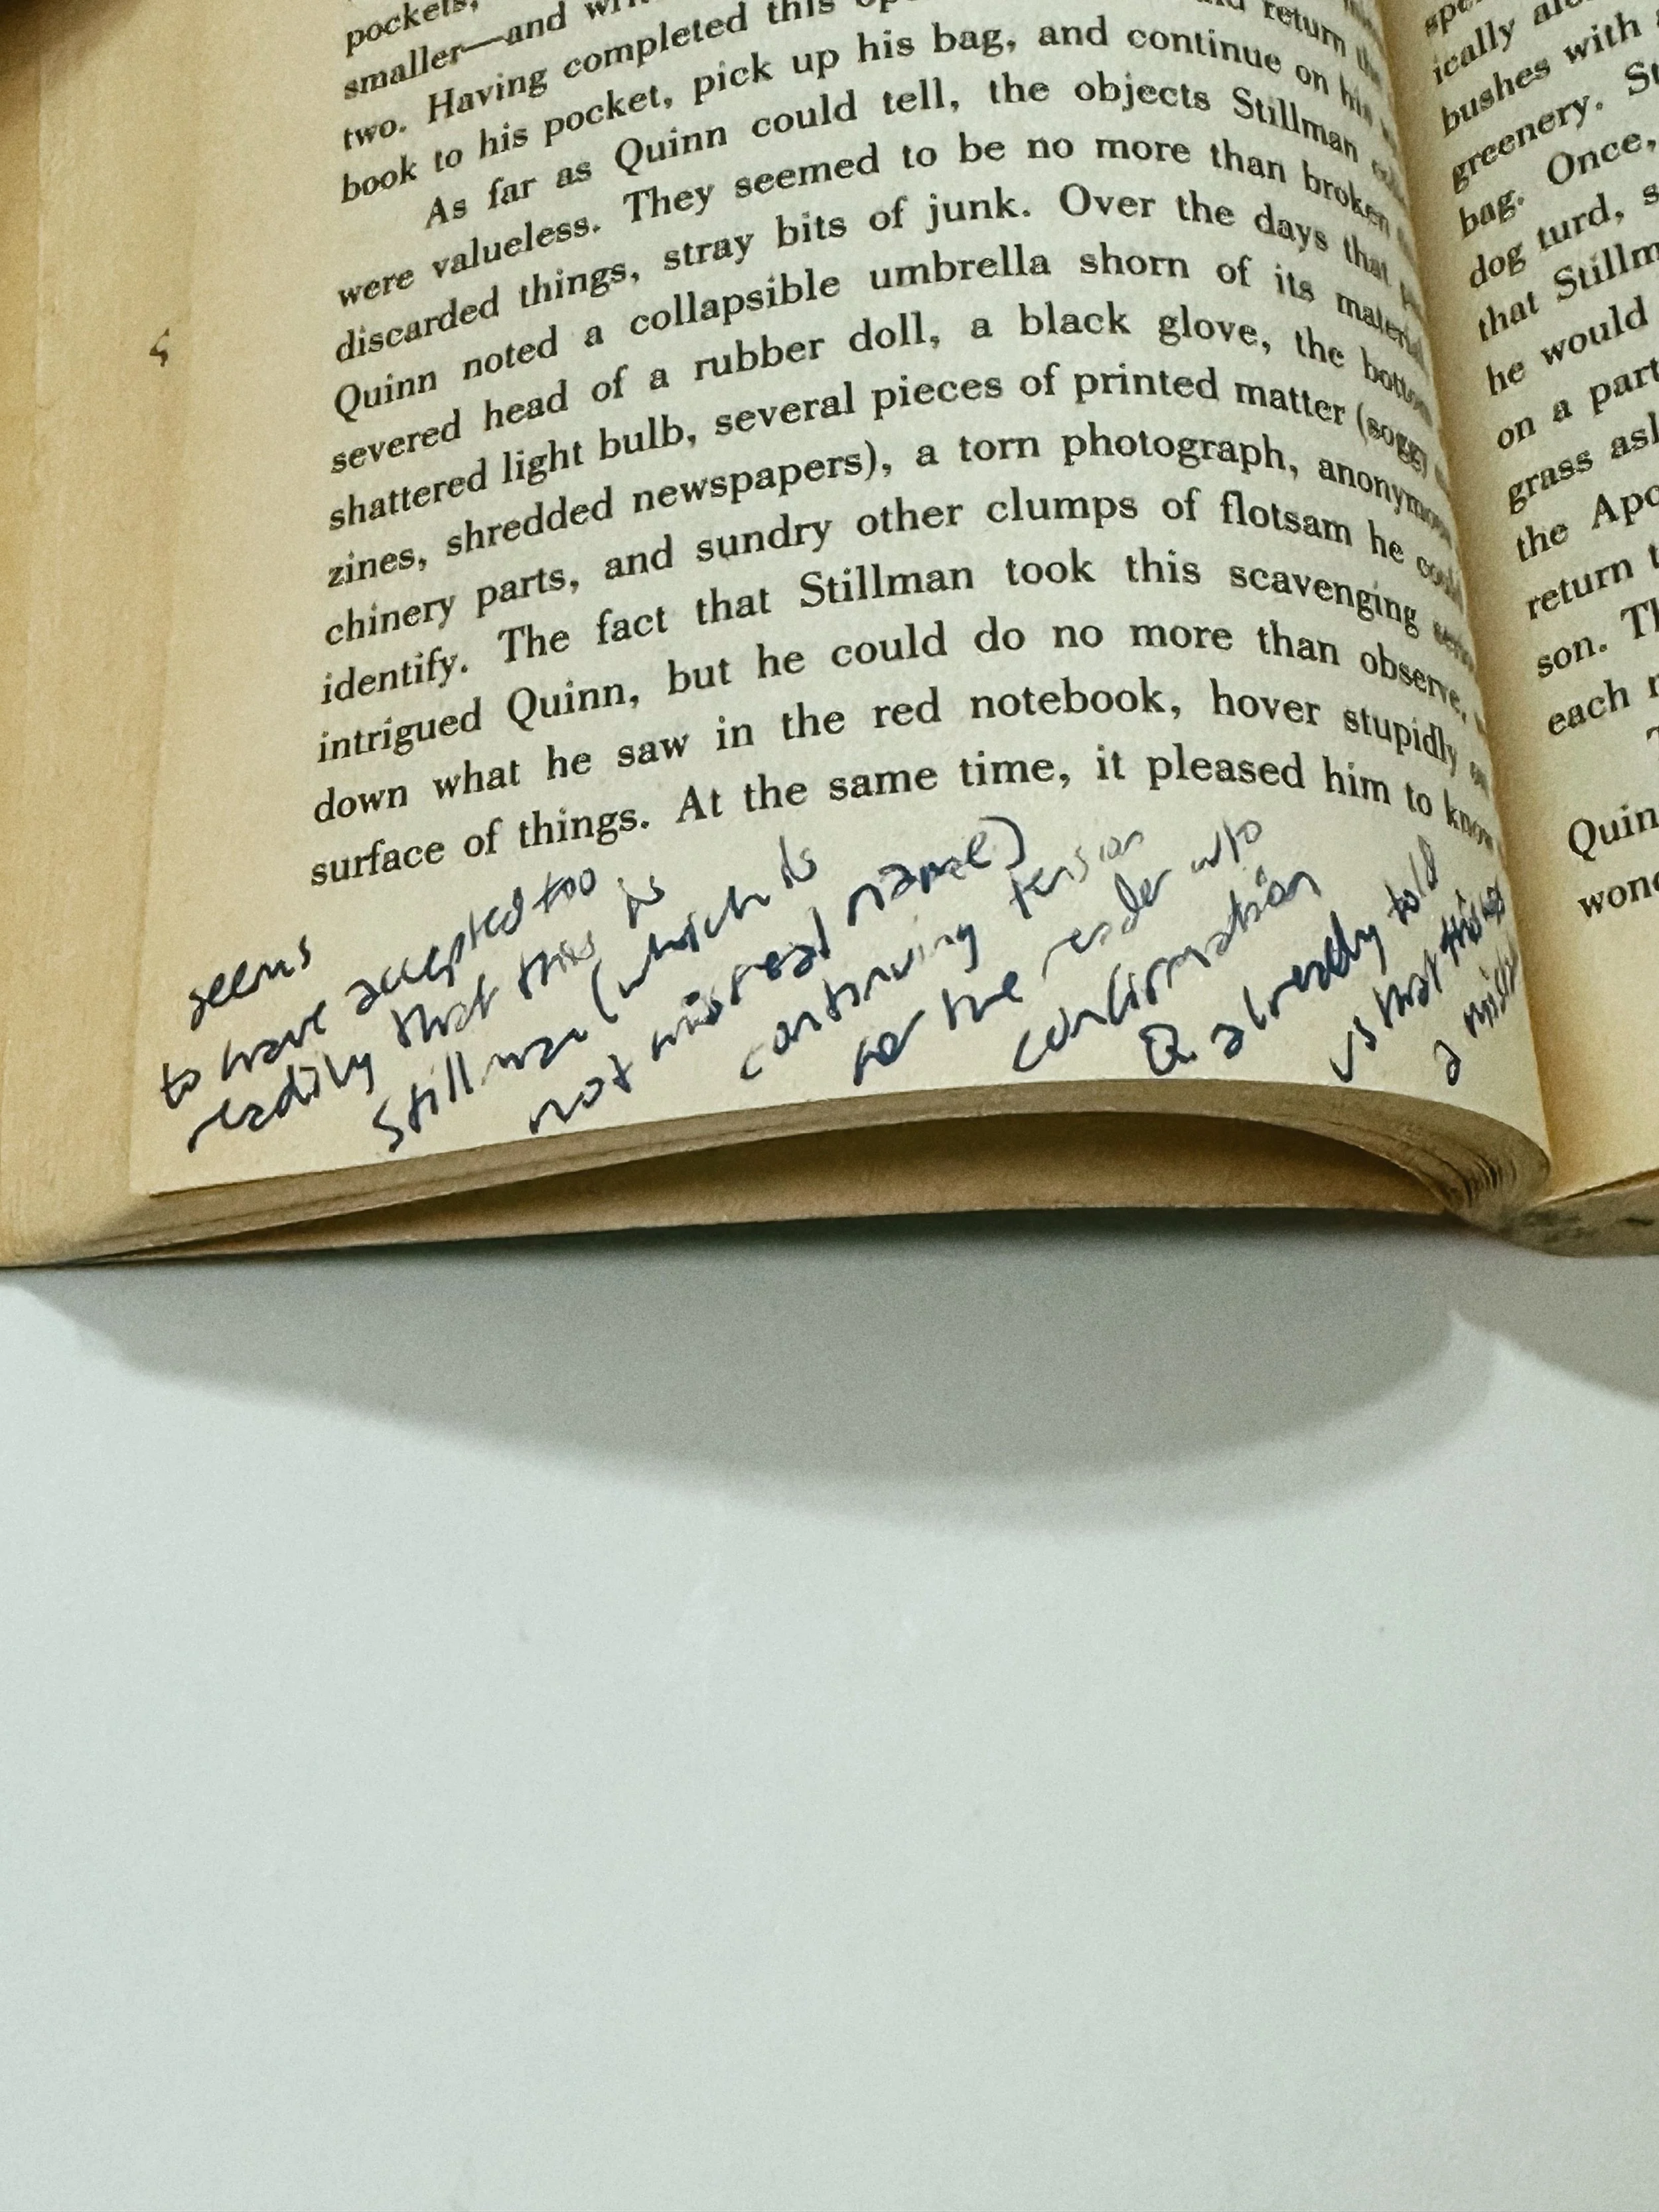 pockets,
smaller—and
two. Having completed this return
book to his pocket, pick up his bag, and continue on his
As far as Quinn could tell, the objects Stillman
were valueless. They seemed to be no more than broken
discarded things, stray bits of junk. Over the days that
Quinn noted a collapsible umbrella shorn of its material
severed head of a rubber doll, a black glove, the bottom
shattered light bulb, several pieces of printed matter (soggy
zines, shredded newspapers), a torn photograph, anonymous
chinery parts, and sundry other clumps of flotsam he could
identify. The fact that Stillman took this scavenging
intrigued Quinn, but he could do no more than observe,
down what he saw in the red notebook, hover stupidly on
surface of things. At the same time, it pleased him to know
seems
to have accepted too
readily that this is
Stillman (which is
not his real name)
continuing tension
for the reader w/o
confirmation
Q already told
us that this
a
ically
bushes with
greenery.
bag. Once,
dog turd,
that Stillm
he would
on a part
grass
the Apo
return
son.
each
Quin
wond